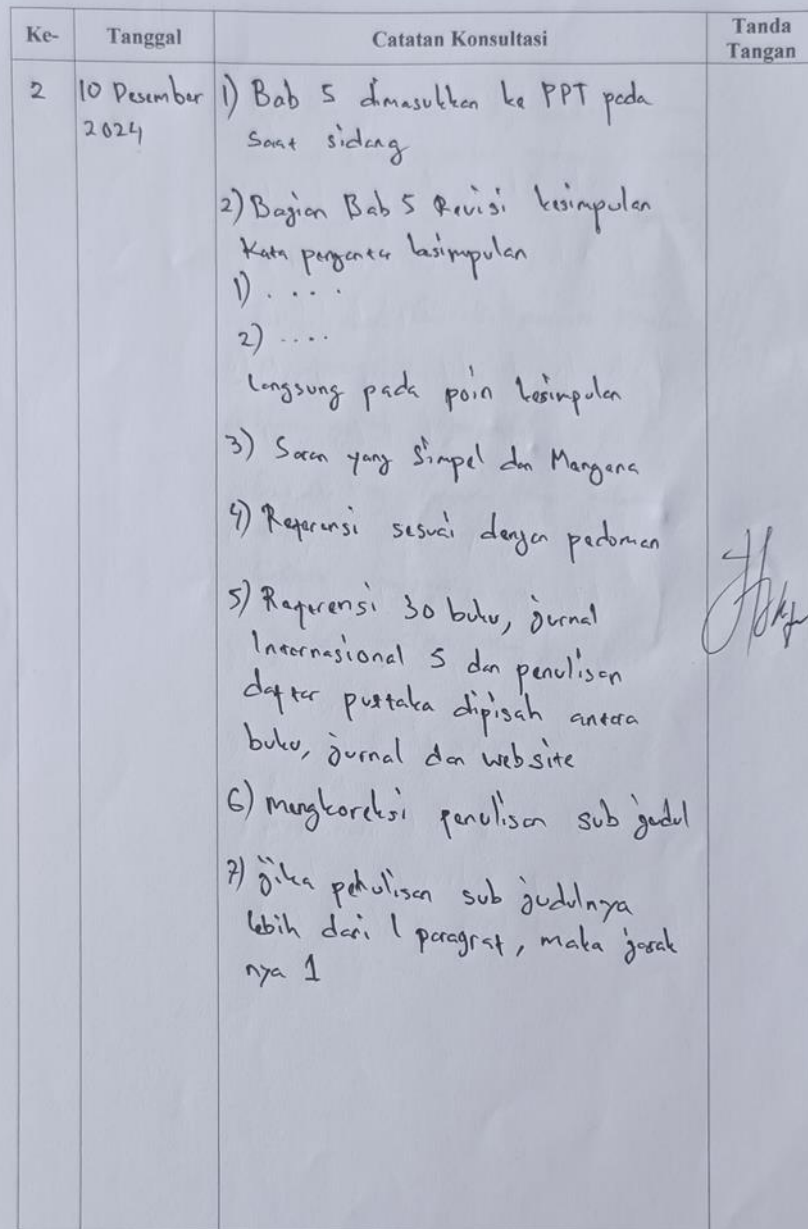 Ke- Tanggal Catatan Konsultasi Tanda Tangan
2 10 Desember 2024
1) Bab 5 dimasukkan ke PPT pada
saat sidang
2) Bagian Bab 5 Revisi kesimpulan
Kata pengantar kesimpulan
1) . . . .
2) ....
langsung pada poin kesimpulan
3) Saran yang Simpel dan Mangena
4) Referensi sesuai dengan pedoman
5) Referensi 30 buku, jurnal
Internasional 5 dan penulisan
daftar pustaka dipisah antara
buku, jurnal dan website
6) mengkoreksi penulisan sub judul
7) jika penulisan sub judulnya
lebih dari 1 paragraf, maka jarak
nya 1